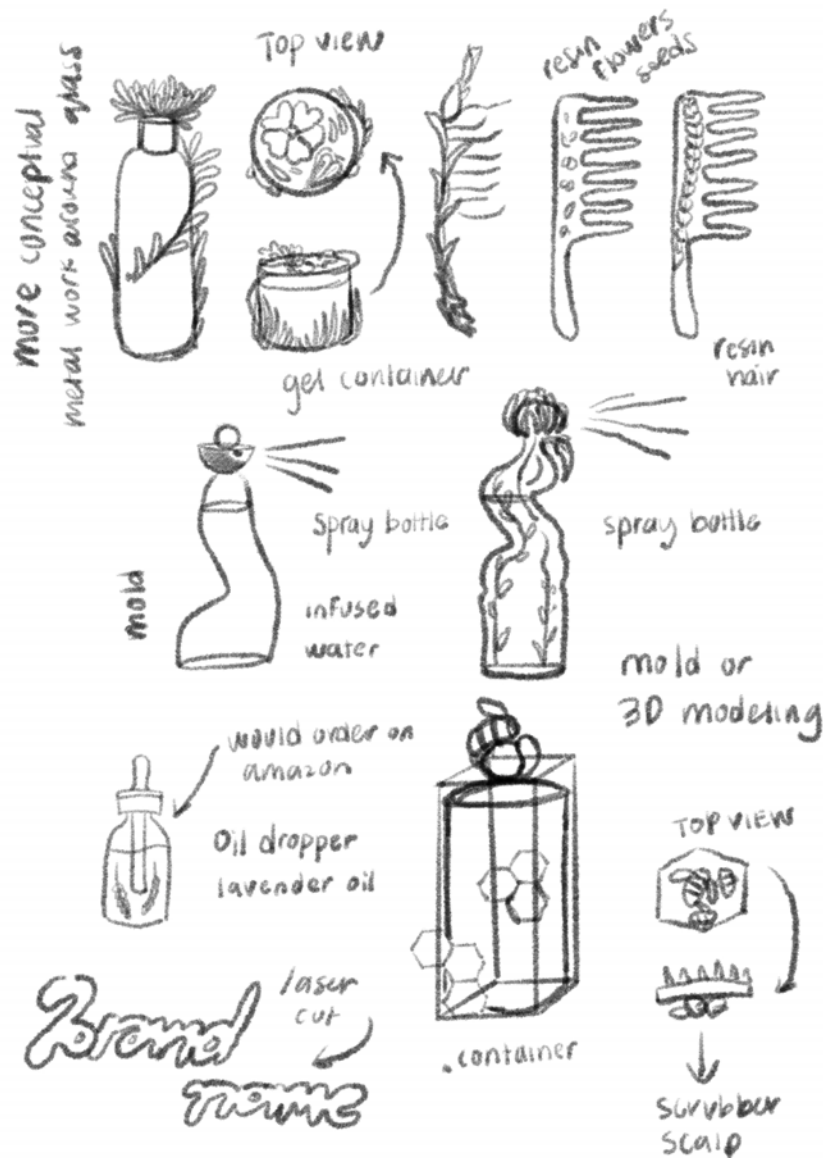 more conceptual
metal work around glass
TOP VIEW
resin
flowers
seeds
gel container
resin
hair
spray bottle
spray bottle
mold
infused
water
mold or
3D modeling
would order on
amazon
Oil dropper
lavender oil
TOP VIEW
laser
cut
Brand
name
.container
scrubber
scalp